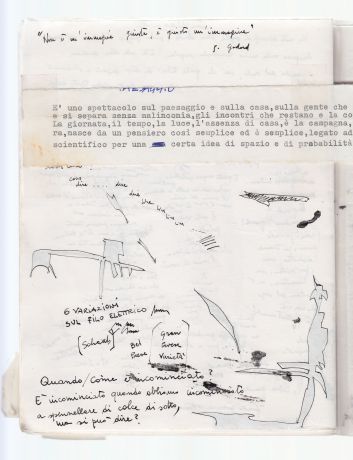 "Non è un'immagine giusta, è giusto un'immagine"
J. Godard
E' uno spettacolo sul paesaggio e sulla casa,sulla gente che
e si separa senza malinconia,gli incontri che restano e la co
La giornata,il tempo,la luce,l'assenza di casa,è la campagna,
ra,nasce da un pensiero così semplice ed è semplice,legato ad
scientifico per una certa idea di spazio e di probabilità
cosa
dire ... dire
dire
6 VARIAZIONI
SUL FILO ELETTRICO
Bel Gran
Paese Varietà
Quando/Come è incominciato?
E' incominciato quando abbiamo incominciato
a spennellare di calce di sotto,
ma si può dire?